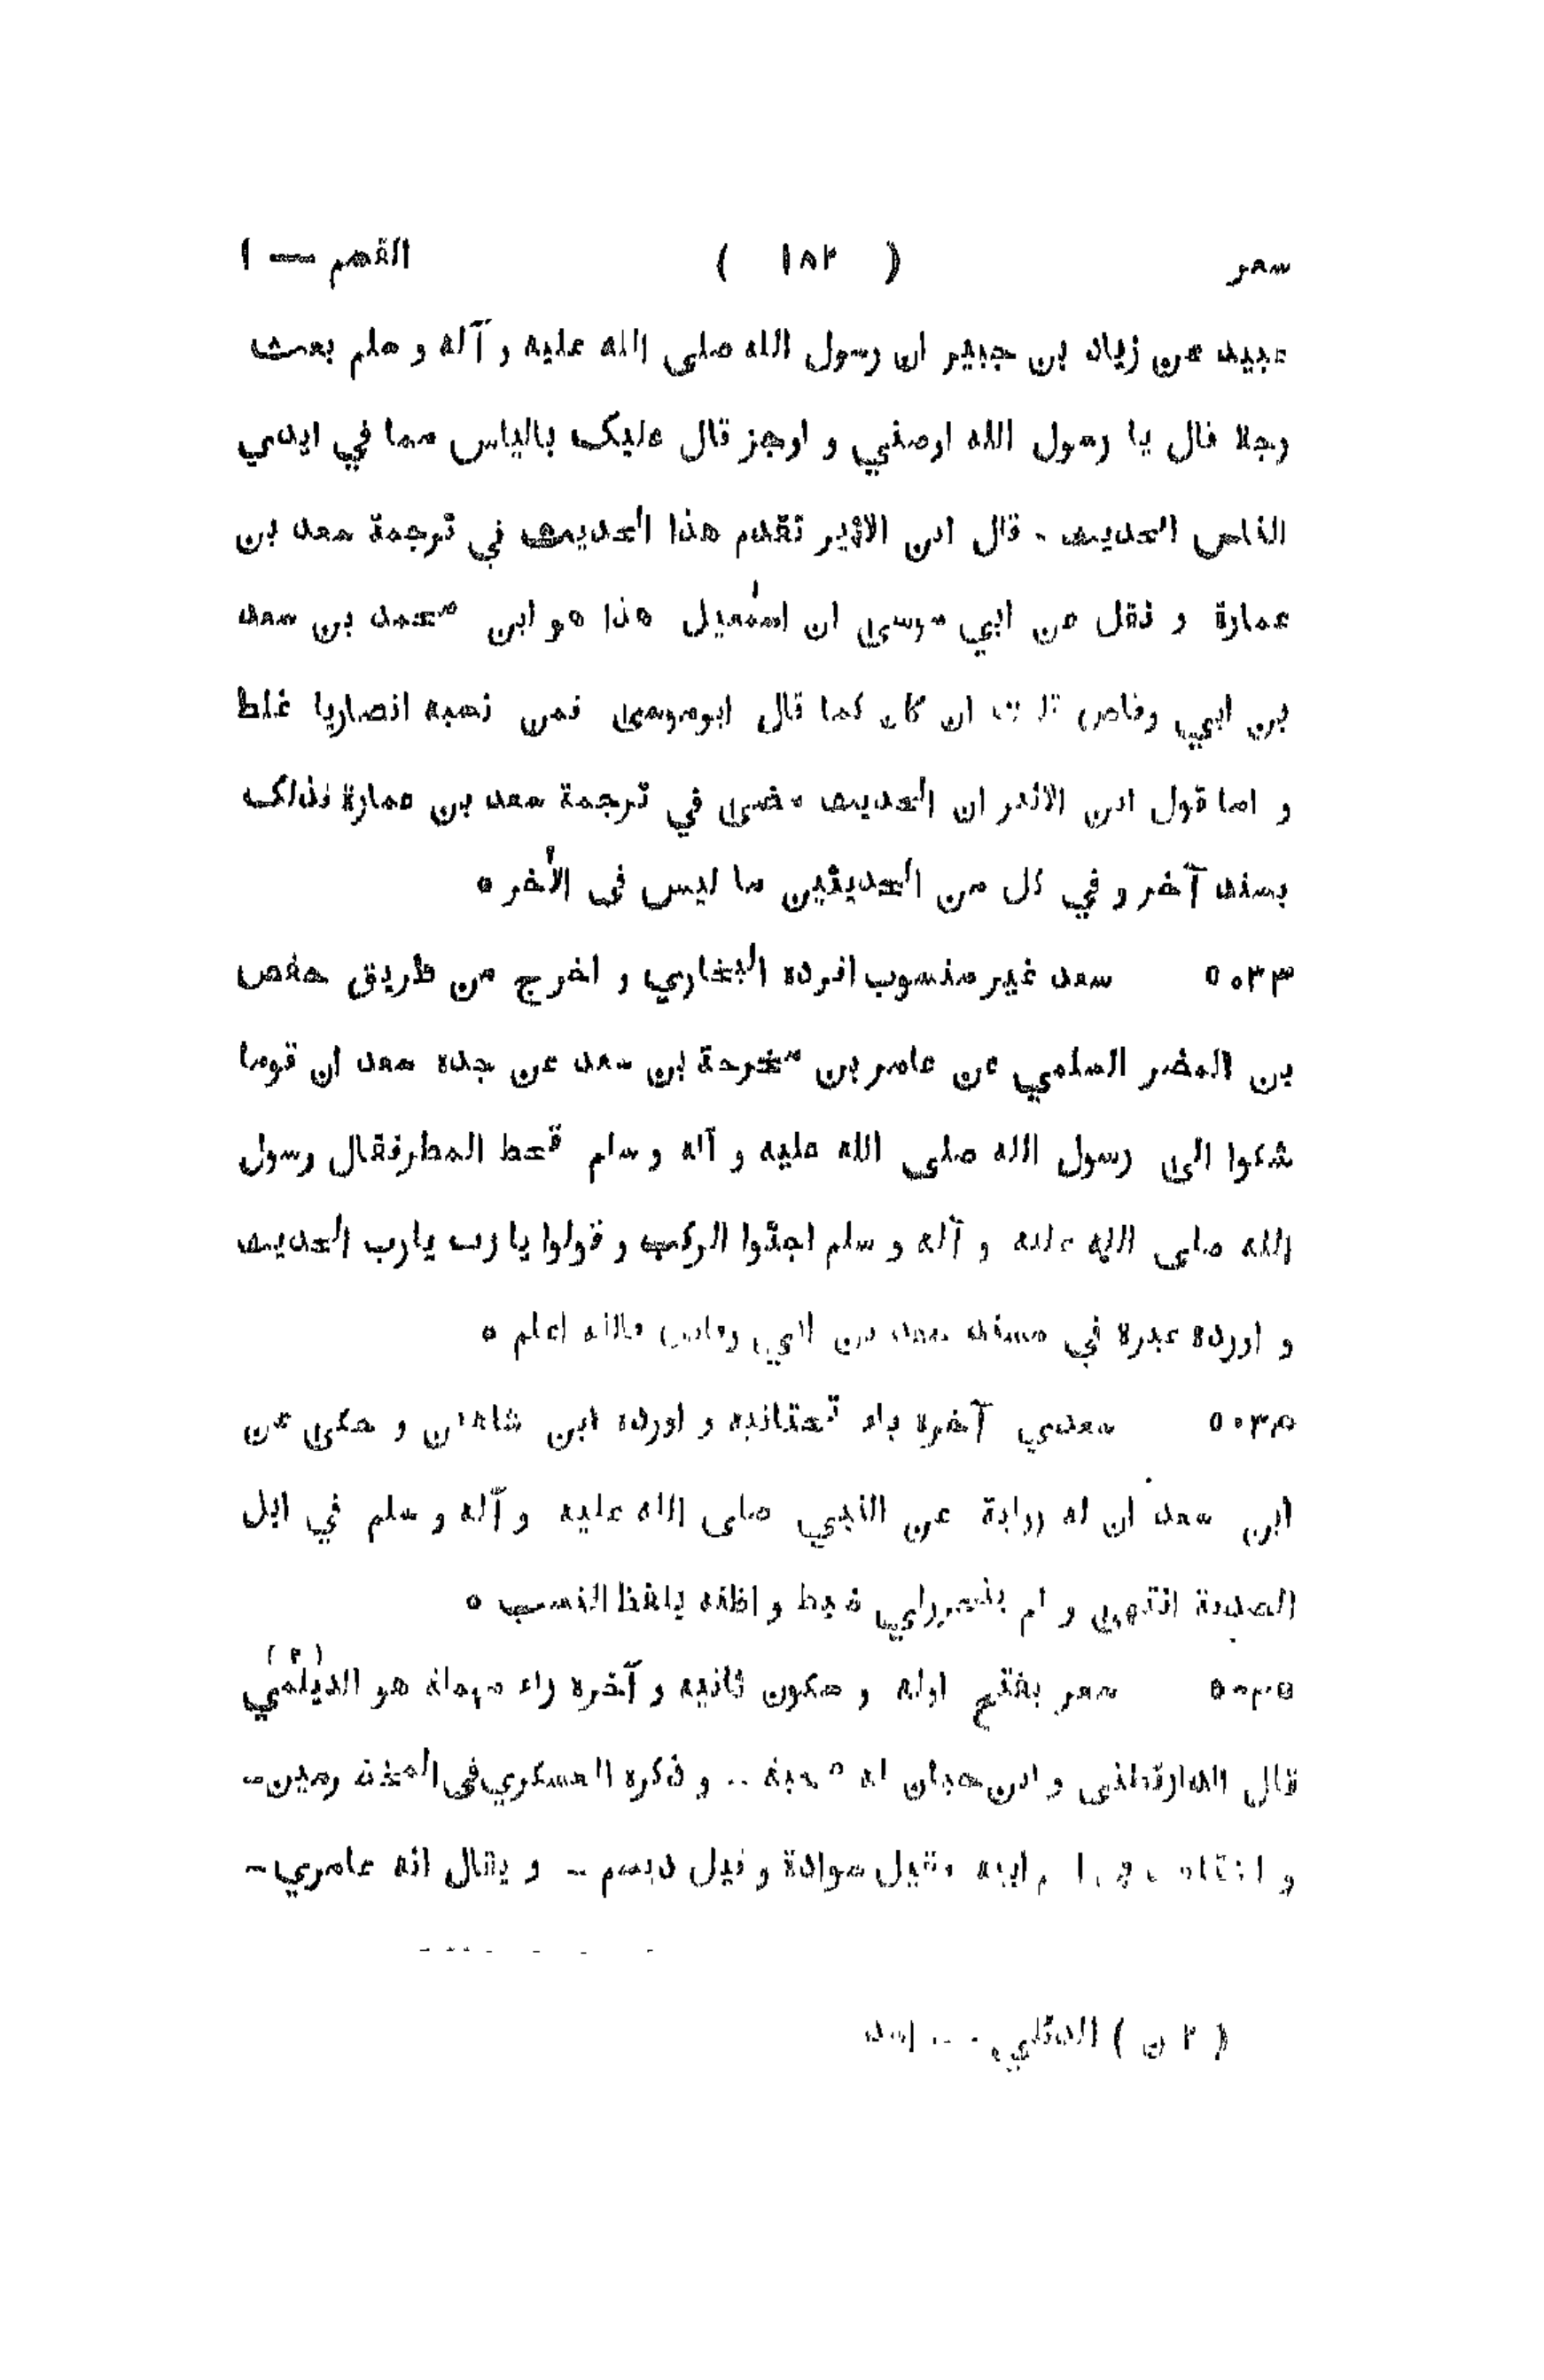 سعر ( ١٨٢ ) القسم — ١
عبيد عن زياد بن جبير ان رسول الله صلى الله عليه و آله و سلم بعث
رجلا فال يا رسول الله اوصني و اوجز قال عليك بالياس مما في ايدي
الناس الحديث - قال ابن الاثير تقدم هذا الحديث في ترجمة سعد بن
عمارة و نقل عن ابي موسى ان اسمعيل هذا هو ابن محمد بن سعد
بن ابي وقاص قلت ان كان كما قال ابوموسى فمن نسبه انصاريا غلط
و اما قول ابن الاثير ان الحديث مضى في ترجمة سعد بن عمارة فذلك
بسند آخر و في كل من الحديثين ما ليس فى الأخر ٥
٥٠٣٣ سعد غير منسوب افرده البخاري و اخرج من طريق حفص
بن المضر السلمي عن عامر بن خرجة بن سعد عن جده سعد ان قوما
شكوا الى رسول الله صلى الله عليه و آله و سلم قحط المطر فقال رسول
الله صلى الله عليه و آله و سلم اجثوا الركب و قولوا يا رب يارب الحديث
و اورده غيره في مسند سعد بن ابي وقاص فالله اعلم ٥
٥٠٣٤ سعدي آخره ياء تحتانيه و اورده ابن شاهين و حكى عن
ابن سعد ان له رواية عن النبي صلى الله عليه و آله و سلم في ابل
الصدقة انتهى و لم يتحرر لي ضبط و اظنه بلفظ النسب ٥
٥٠٣٥ سعر بفتح اوله و سكون ثانيه و آخره راء مهملة هو الديلمي (٢)
قال الدارقطنى و ابن حبان له صحبة - و ذكره العسكري فى المخضرمين -
و اسم ابيه فقيل سوادة و قيل ديسم - و يقال انه عامري -
( ٢ ن ) الدئلي - اسد